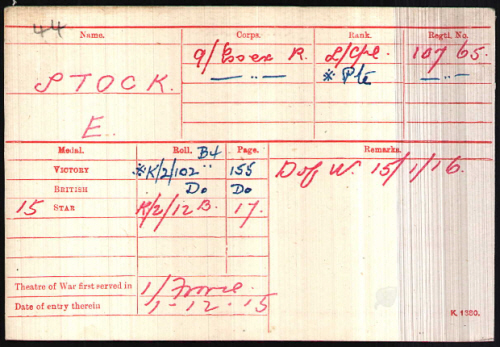 44
Name. Corps. Rank. Regtl. No.
STOCK. 9/Essex R. L/Cpl. 10765.
— " — * Pte — " —
E.
Medal. Roll. B4 Page. Remarks.
VICTORY *K/2/102 " 155 D of W. 15/1/16.
BRITISH Do Do
15 STAR K/2/12 B. 17.
Theatre of War first served in 1/ France
Date of entry therein 1-12-15
K 1380.